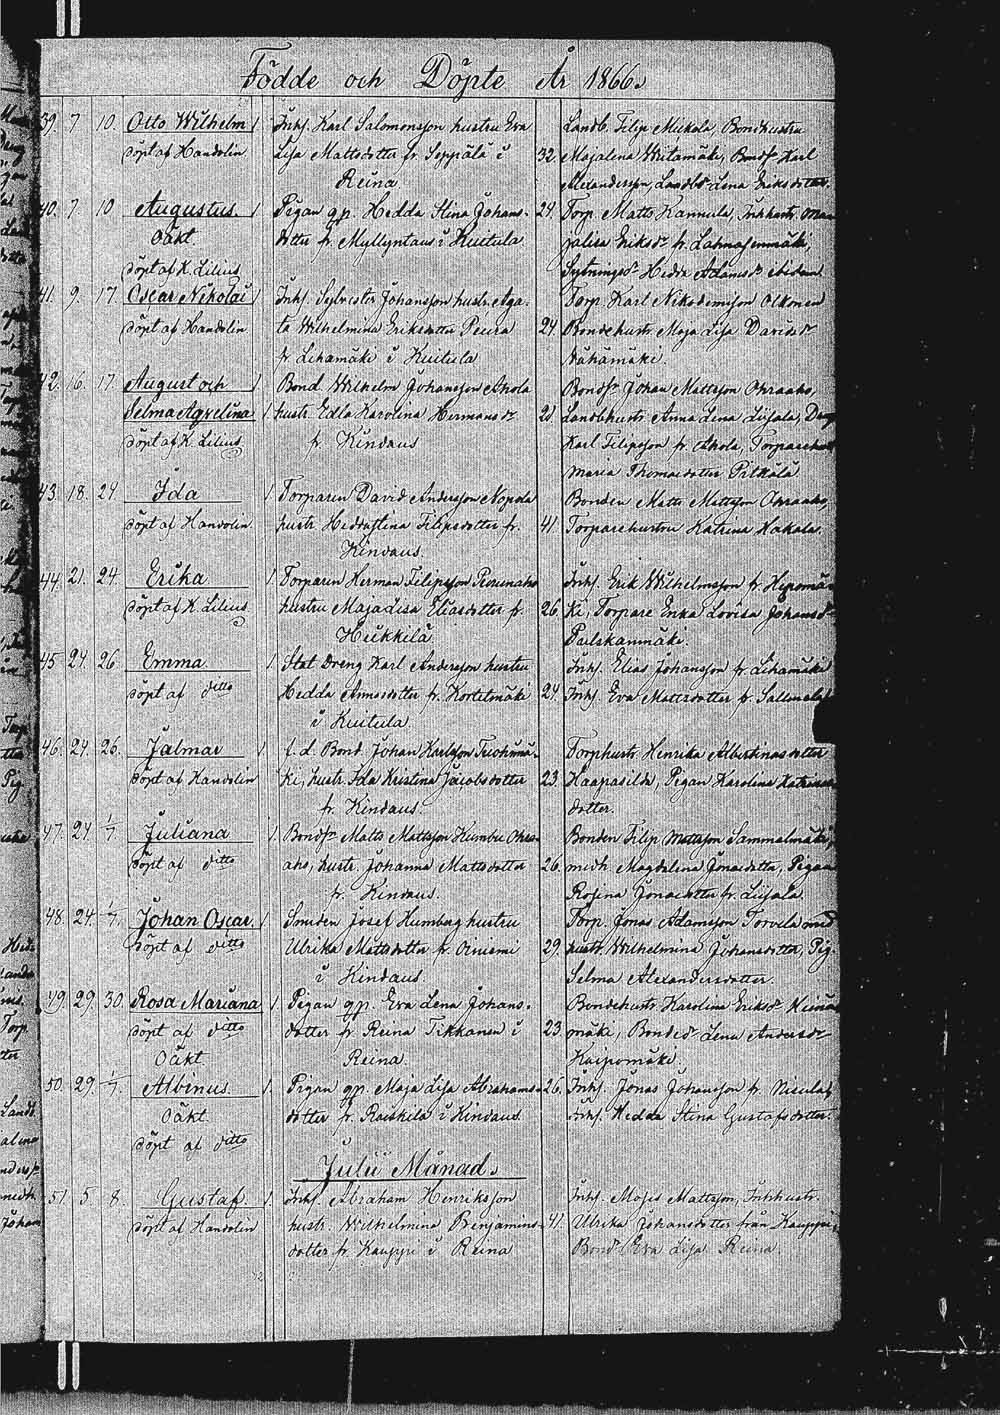 Födde och Döpte År 1866.
39. 7 10. Otto Wilhelm 1 Inhs. Karl Salomonsson hustru Eva Landb. Filip Mickola, Bondhustru
döpt af Handolin Lisa Mattsdotter fr. Seppälä i 32. Majalena Karl
Reina Alexandersson, Lena Eriksdotter.
40. 7. 10 Augustus. 1 Pigan qp. Hedda Stina Johans- 24. Torp. Matts Kannula,
Oäkt. dotter fr. Myllyntaus i Kuitula jalisa Eriksdr fr. Lahnajenmäki,
döpt af K. Lilius Hedda Adamsdr ibidem
41. 9. 17. Oscar Nikolai 1 Inhs. Sylvester Johansson hustr. Aga- Torp. Karl Nikodemisson Olkonen
döpt af Handolin ta Wilhelmina Eriksdotter Peura 24. Bondehustr. Maja Lisa Davidsdr
fr. Lihamäki i Kuitula Nähämäki.
42. 16. 17. August och 1 Bond. Wilhelm Johansson Ahola Bondsr Johan Mattsson Ohraaho,
Selma Aqvelina 1 hustr. Edla Karolina Hermansdr 21. Landbhustr. Anna Lena Liisala,
döpt af K. Lilius fr. Kindaus Karl Filipsson fr. Ahola,
Maria Thomasdotter Pitkälä
43. 18. 24. Ida 1 Torparen David Andersson Nopola Bonden Matts Mattsson Ohraaho,
döpt af Handolin hustr. Hedda Stina Filipsdotter fr. 41. Torparehustru Katrina Hakala.
Kindaus.
44. 21. 24. Erika 1. Torparen Herman Filipsson Perunaho Inhs. Erik Wilhelmsson fr. Hepomä-
döpt af K. Lilius hustru Maja Lisa Eliasdotter fr. 26. ki, Torpare Enka Lovisa Johansdr
Heikkilä Pailskanmäki.
45. 24. 26 Emma. 1. Stat Dreng Karl Andersson hustru Inhs. Elias Johansson fr. Lihamäki
döpt af ditto Hedda Amosdotter fr. Kortetmäki 24. Inhs. Eva Mattsdotter fr.
i Kuitula
46. 24. 26. Jalmar 1. f. d. Bond. Johan Karlsson Tuohimä- Torphustr. Henrika Albertinasdotter
döpt af Handolin ki, hustr. Ida Kristina Jacobsdotter 23. Haapasilda, Pigan Karolina
fr. Kindaus. dotter.
47. 24 1/7 Juliana 1. Bondsr Matts Mattsson Kumbu Ohra- Bonden Filip Mattsson Sammalmäki,
döpt af ditto aho, hustr. Johanna Mattsdotter 26. Magdalena Jonasdotter, Pigan
fr. Kindaus. Rosina Jonasdotter fr. Liisala.
48. 24. 1/7. Johan Oscar. 1 Smeden Josef Humberg hustru Torp. Jonas Adamsson Torvela med
döpt af ditto Ulrika Mattsdotter fr. 29. hustr. Wilhelmina Johansdotter, Pig.
i Kindaus Selma Alexandersdotter.
49. 29. 30. Rosa Mariana 1. Pigan qp. Eva Lena Johans- Bondehustr. Karolina Eriksdr
döpt af ditto dotter fr. Reina Tikkanen i 23. mäki, Lena Andersdr
Oäkt. Reina. Kaipomäki.
50. 29. 1/7. Albinus. 1. Pigan qp. Maja Lisa Abrahams- 26. Inhs. Jonas Johansson fr.
Oäkt. dotter fr. Raiskila i Kindaus Inhs. Hedda Stina Gustafsdotter.
döpt af ditto
Julii Månad.
51 5 8. Gustaf 1. Inhs. Abraham Henriksson Inhs. Moses Mattsson, Inhshustr.
döpt af Handolin hustr. Wilhelmina Benjamins- 41. Ulrika Johansdotter från Kauppi,
dotter fr. Kauppi i Reina Bond. Eva Lisa Reina.